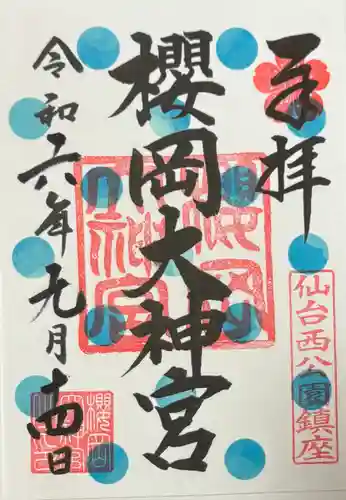 奉拝
仙台西公園鎮座
櫻岡大神宮
令和六年九月十四日